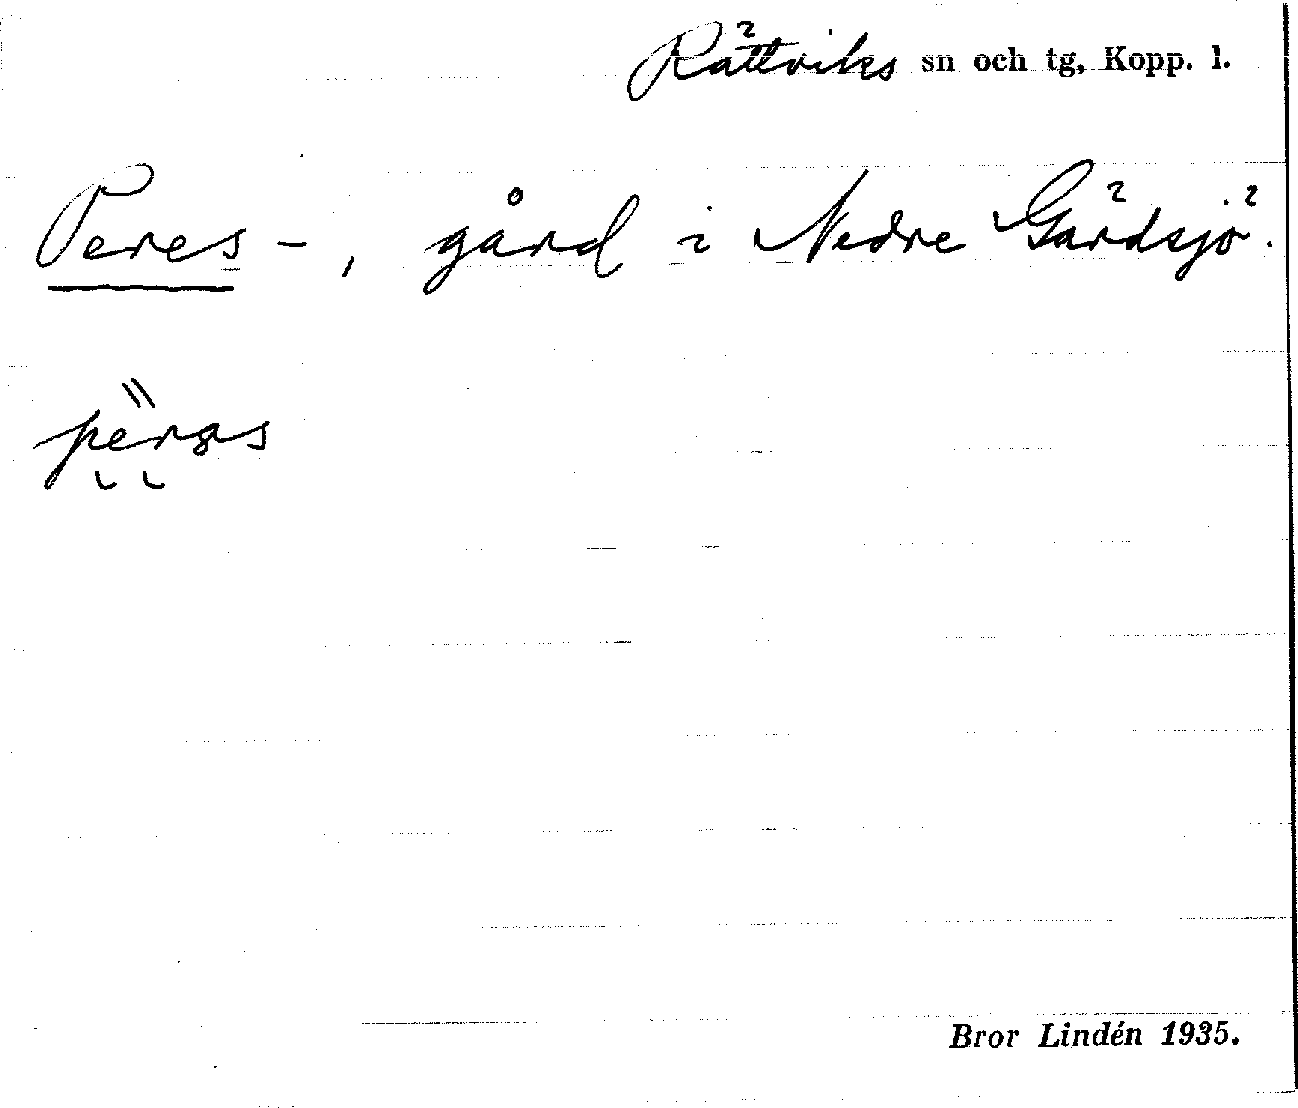 Rättviks sn och tg, Kopp. l.
Peres-, gård i Nedre Gärdsjö.
Bror Lindén 1935.